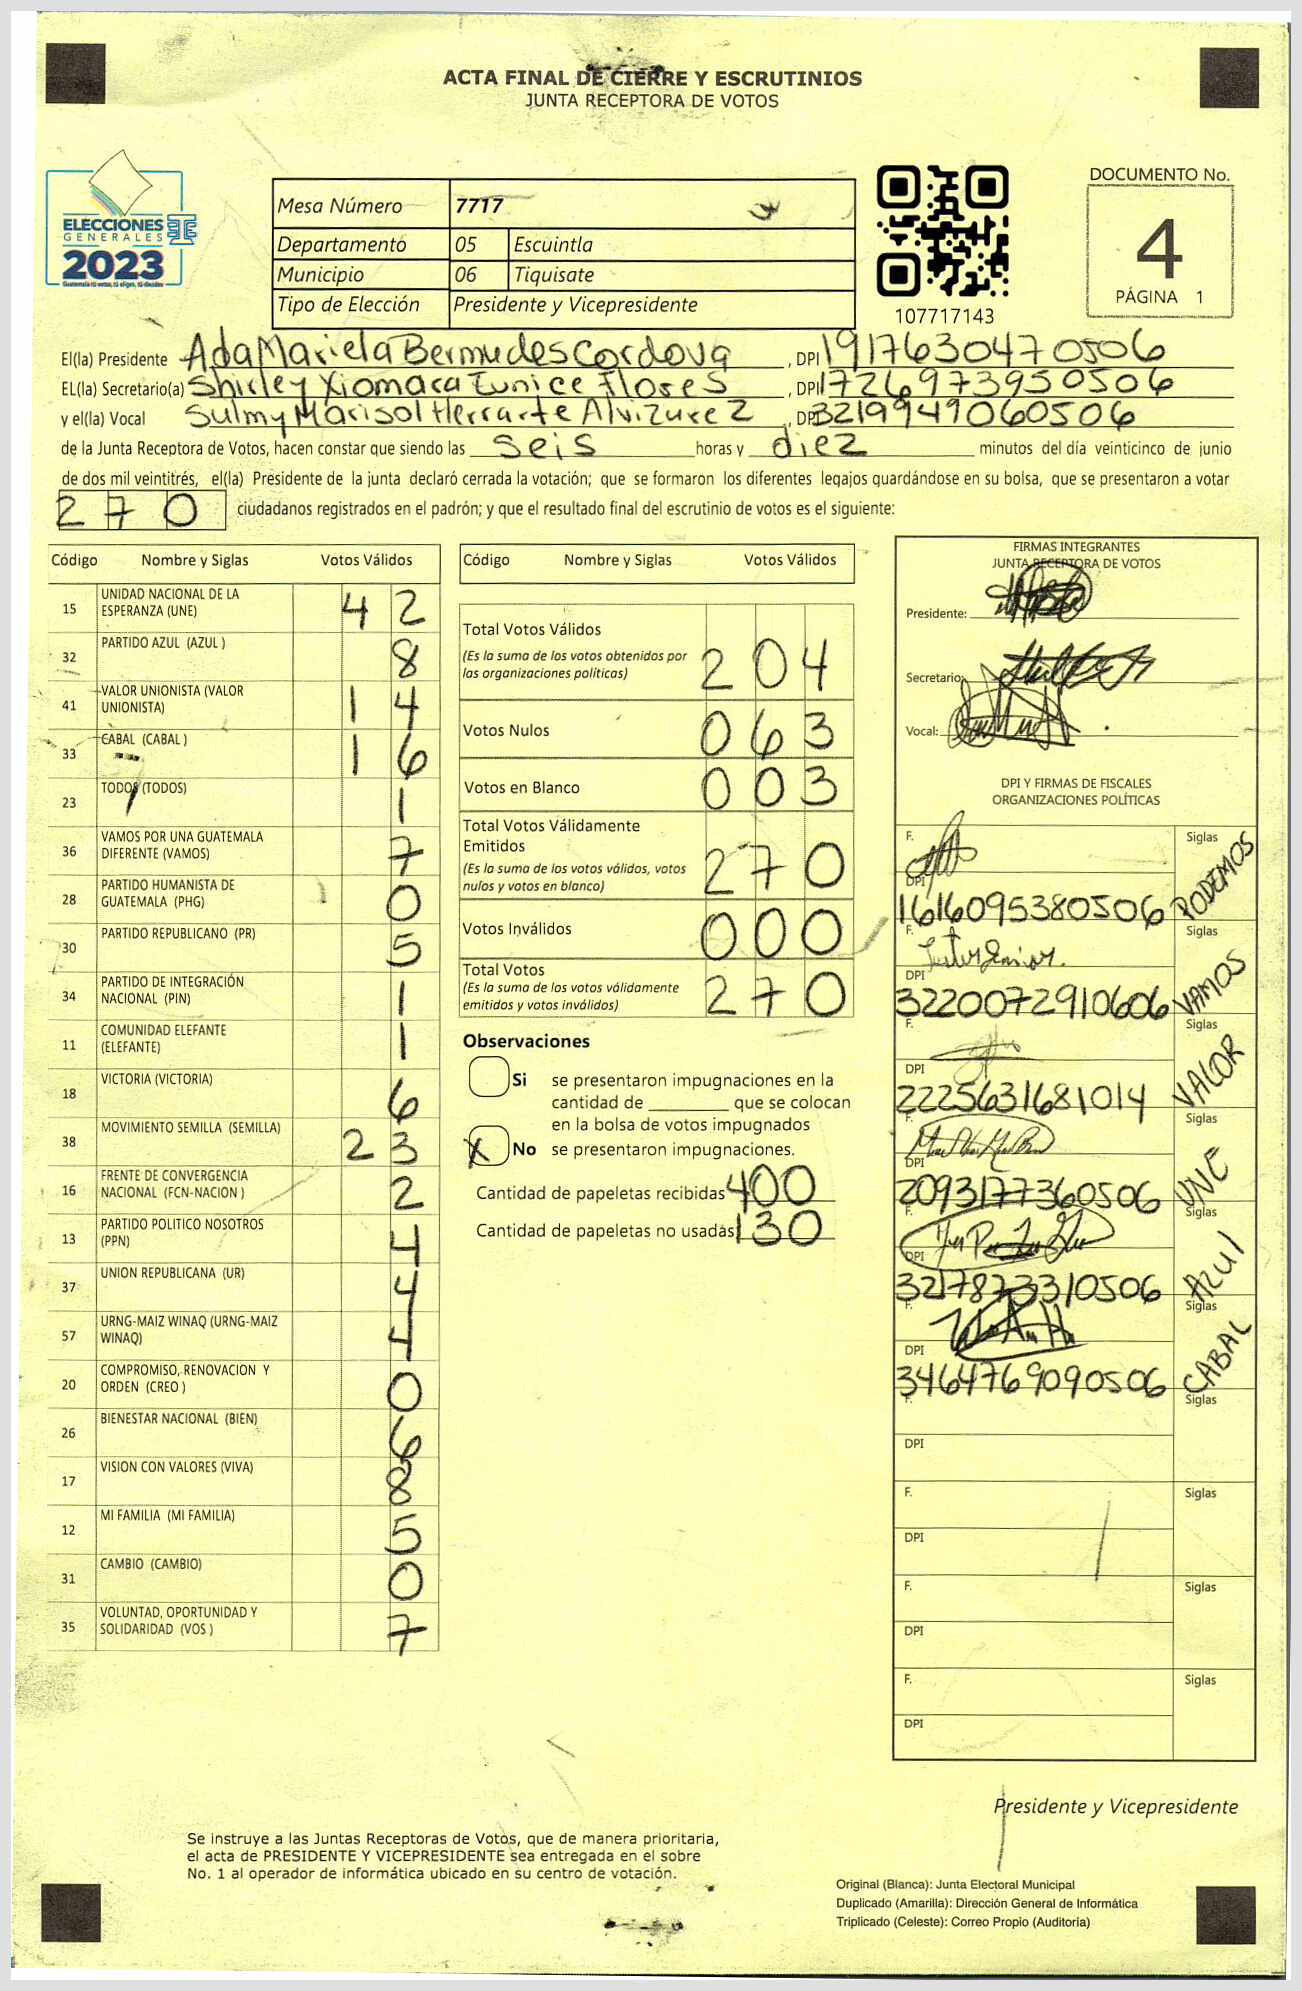 ACTA FINAL DE CIERRE Y ESCRUTINIOS
JUNTA RECEPTORA DE VOTOS
ELECCIONES
GENERALES
2023
Guatemala tú votas, tú eliges, tú decides
Mesa Número 7717
Departamento 05 Escuintla
Municipio 06 Tiquisate
Tipo de Elección Presidente y Vicepresidente
107717143
DOCUMENTO No.
4
PÁGINA 1
El(la) Presidente Ada Mariela Bermudes Cordova, DPI 1917630470506
EL(la) Secretario(a) Shirley Xiomara Eunice Flores, DPI 1726973950506
y el(la) Vocal Sulmy Marisol Herrarte Alvizurez, DPI 3219949060506
de la Junta Receptora de Votos, hacen constar que siendo las seis horas y diez minutos del día veinticinco de junio
de dos mil veintitrés, el(la) Presidente de la junta declaró cerrada la votación; que se formaron los diferentes legajos guardándose en su bolsa, que se presentaron a votar
270 ciudadanos registrados en el padrón; y que el resultado final del escrutinio de votos es el siguiente:
Código Nombre y Siglas Votos Válidos
15 UNIDAD NACIONAL DE LA ESPERANZA (UNE) 42
32 PARTIDO AZUL (AZUL ) 8
41 VALOR UNIONISTA (VALOR UNIONISTA) 14
33 CABAL (CABAL ) 16
23 TODOS (TODOS) 1
36 VAMOS POR UNA GUATEMALA DIFERENTE (VAMOS) 7
28 PARTIDO HUMANISTA DE GUATEMALA (PHG) 0
30 PARTIDO REPUBLICANO (PR) 5
34 PARTIDO DE INTEGRACIÓN NACIONAL (PIN) 1
11 COMUNIDAD ELEFANTE (ELEFANTE) 1
18 VICTORIA (VICTORIA) 6
38 MOVIMIENTO SEMILLA (SEMILLA) 23
16 FRENTE DE CONVERGENCIA NACIONAL (FCN-NACION ) 2
13 PARTIDO POLITICO NOSOTROS (PPN) 4
37 UNION REPUBLICANA (UR) 4
57 URNG-MAIZ WINAQ (URNG-MAIZ WINAQ) 4
20 COMPROMISO, RENOVACION Y ORDEN (CREO ) 0
26 BIENESTAR NACIONAL (BIEN) 6
17 VISION CON VALORES (VIVA) 8
12 MI FAMILIA (MI FAMILIA) 5
31 CAMBIO (CAMBIO) 0
35 VOLUNTAD, OPORTUNIDAD Y SOLIDARIDAD (VOS ) 7
Código Nombre y Siglas Votos Válidos
Total Votos Válidos 204
(Es la suma de los votos obtenidos por
las organizaciones políticas)
Votos Nulos 063
Votos en Blanco 003
Total Votos Válidamente
Emitidos 270
(Es la suma de los votos válidos, votos
nulos y votos en blanco)
Votos Inválidos 000
Total Votos 270
(Es la suma de los votos válidamente
emitidos y votos inválidos)
Observaciones
Si se presentaron impugnaciones en la
cantidad de ________ que se colocan
en la bolsa de votos impugnados
X No se presentaron impugnaciones.
Cantidad de papeletas recibidas 400
Cantidad de papeletas no usadas 130
FIRMAS INTEGRANTES
JUNTA RECEPTORA DE VOTOS
Presidente:
Secretario:
Vocal:
DPI Y FIRMAS DE FISCALES
ORGANIZACIONES POLÍTICAS
F. Siglas PODEMOS
DPI 1616095380506
F. Siglas VAMOS
DPI 3220072910606
F. Siglas VALOR
DPI 2225631681014
F. Siglas UNE
DPI 2093177360506
F. Siglas AZUL
DPI 3217873310506
F. Siglas CABAL
DPI 3464769090506
F. Siglas
DPI
F. Siglas
DPI
F. Siglas
DPI
F. Siglas
DPI
Presidente y Vicepresidente
Se instruye a las Juntas Receptoras de Votos, que de manera prioritaria,
el acta de PRESIDENTE Y VICEPRESIDENTE sea entregada en el sobre
No. 1 al operador de informática ubicado en su centro de votación.
Original (Blanca): Junta Electoral Municipal
Duplicado (Amarilla): Dirección General de Informática
Triplicado (Celeste): Correo Propio (Auditoría)